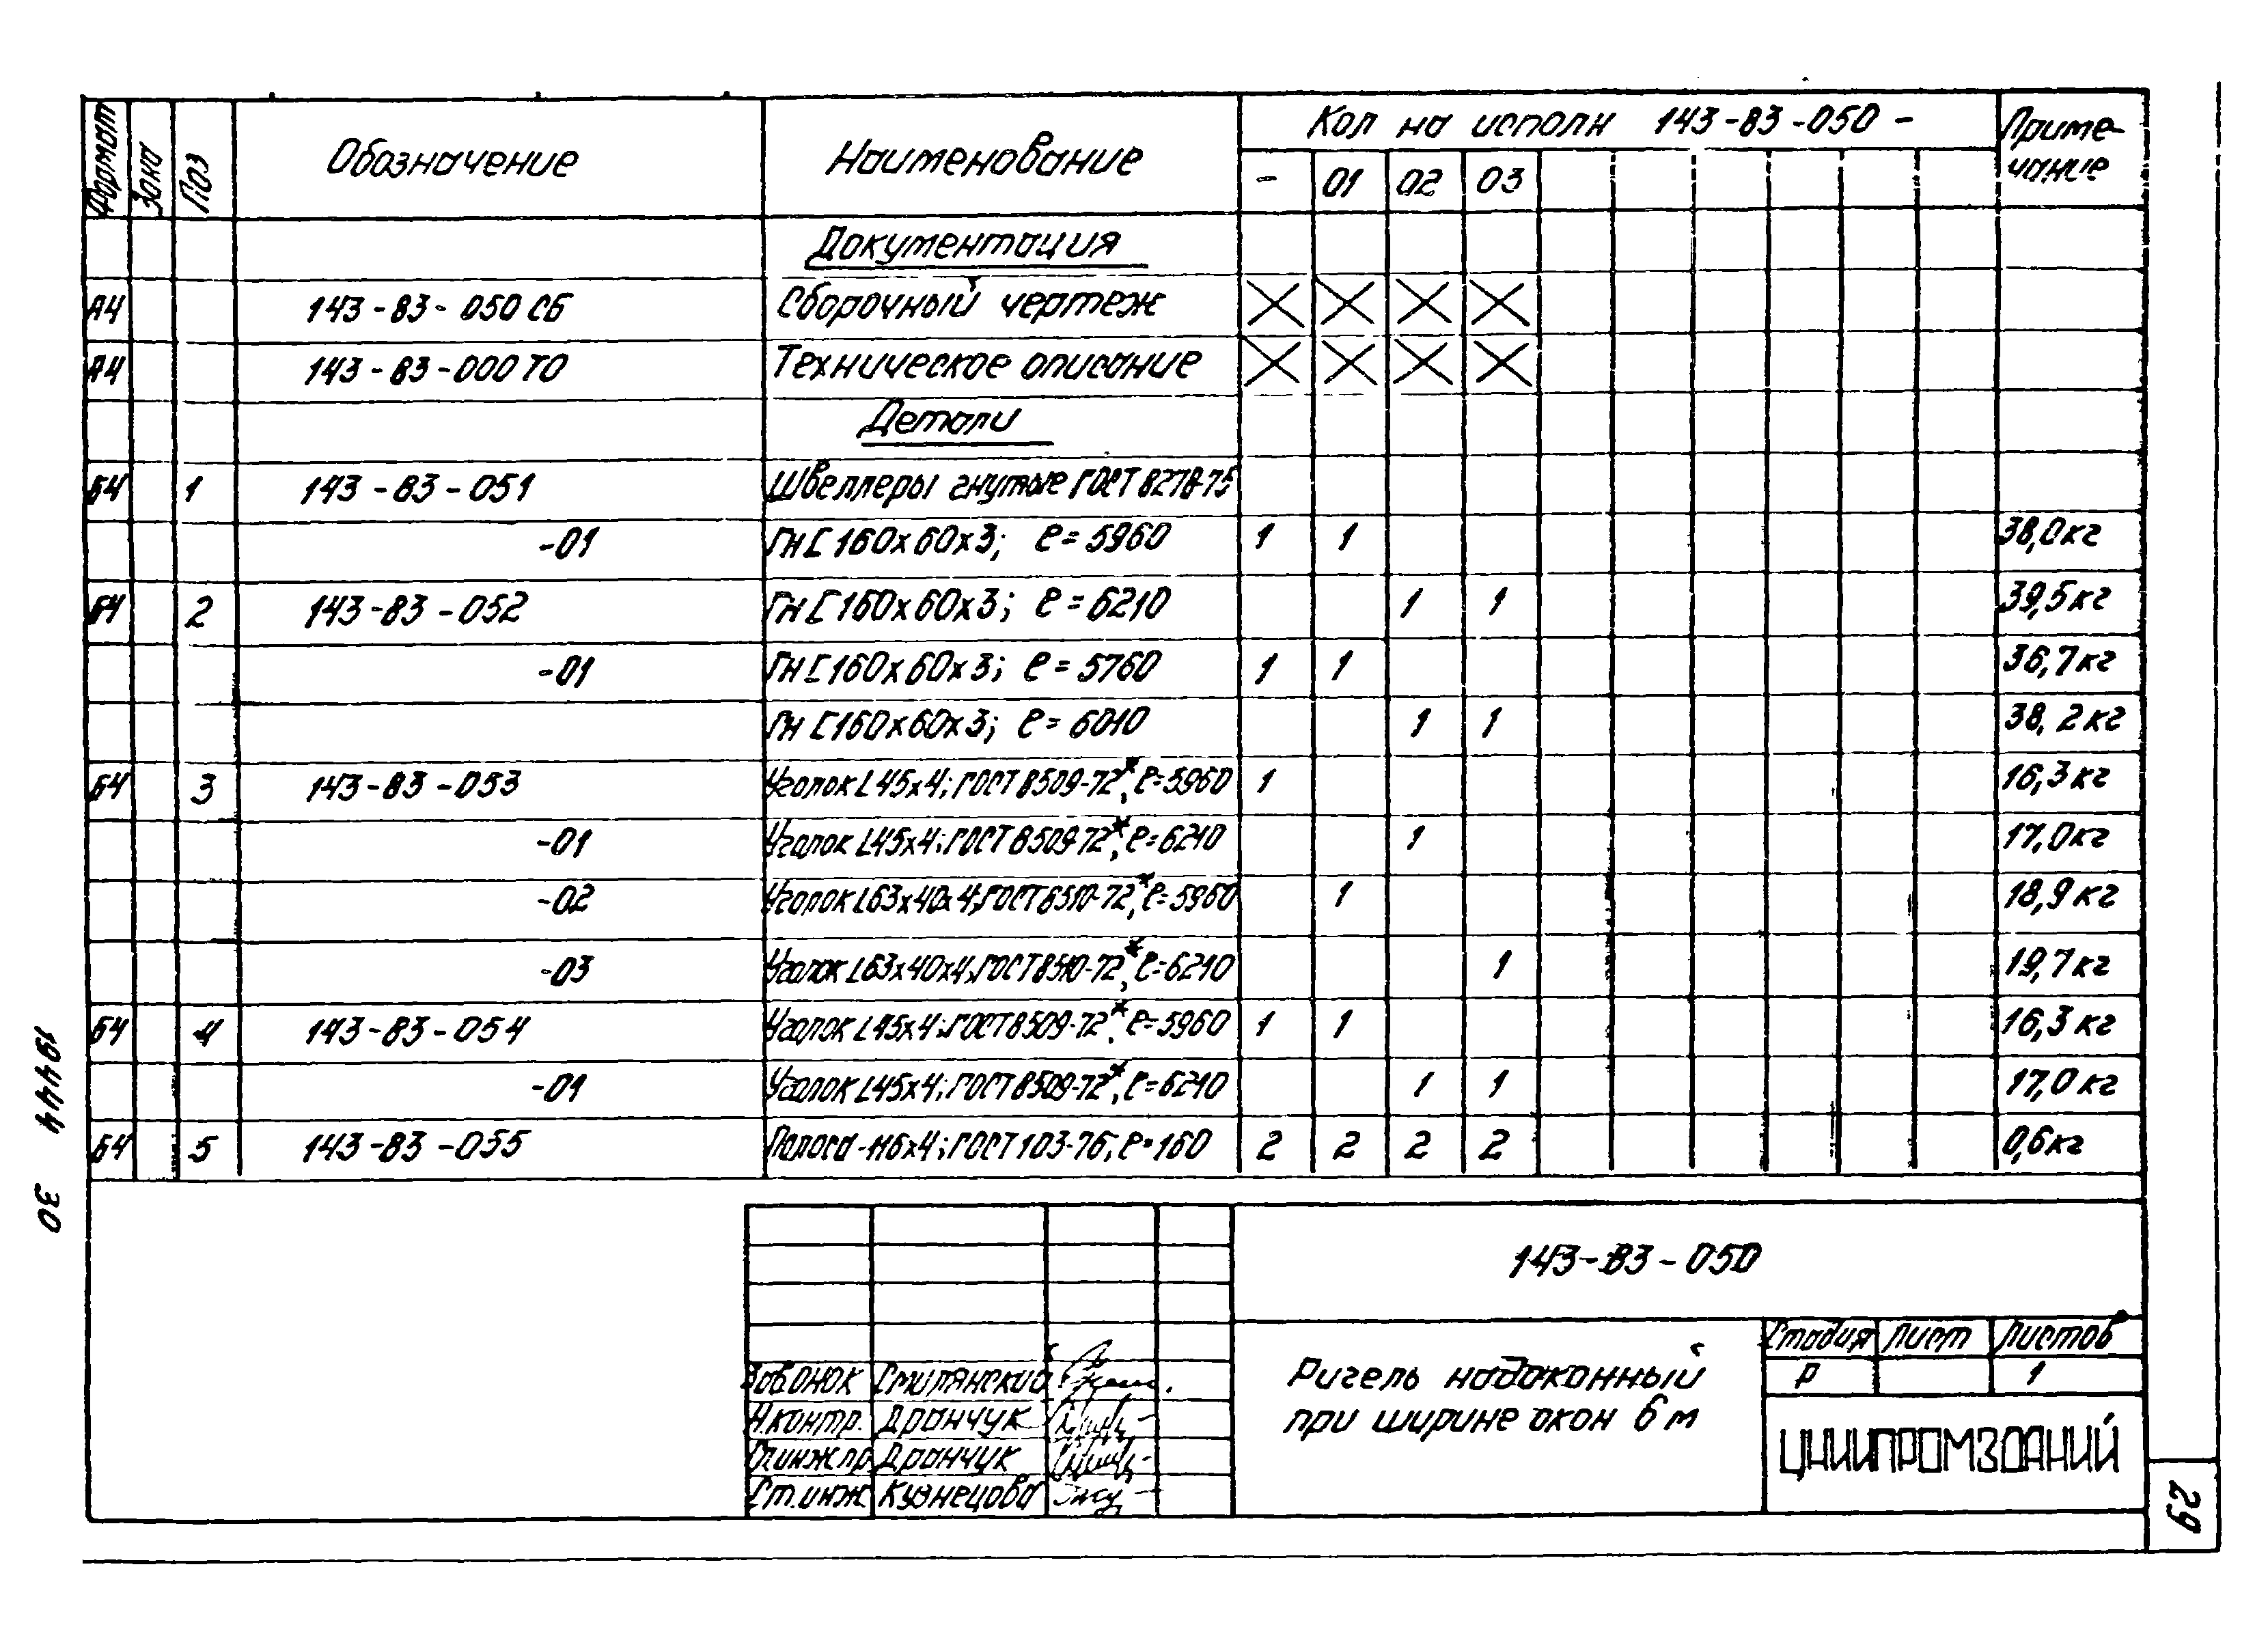 Формат Зона Поз Обозначение Наименование Кол на исполн 143-83-050 - Приме-
чание
- 01 02 03
Документация
А4 143-83-050 СБ Сборочный чертеж
А4 143-83-000 ТО Техническое описание
Детали
Б4 1 143-83-051 Швеллеры гнутые ГОСТ 8278-75
-01 Гн [ 160х60х3; ℓ=5960 1 1 38,0кг
Б4 2 143-83-052 Гн [ 160х60х3; ℓ=6210 1 1 39,5кг
-01 Гн [ 160х60х3; ℓ=5760 1 1 36,7кг
Гн [ 160х60х3; ℓ=6010 1 1 38,2кг
Б4 3 143-83-053 Уголок L45х4; ГОСТ 8509-72*, ℓ=5960 1 16,3кг
-01 Уголок L45х4; ГОСТ 8509-72*, ℓ=6210 1 17,0кг
-02 Уголок L63х40х4; ГОСТ 8510-72*, ℓ=5960 1 18,9кг
-03 Уголок L63х40х4; ГОСТ 8510-72*, ℓ=6210 1 19,7кг
Б4 4 143-83-054 Уголок L45х4; ГОСТ 8509-72*, ℓ=5960 1 1 16,3кг
-01 Уголок L45х4; ГОСТ 8509-72*, ℓ=6210 1 1 17,0кг
Б4 5 143-83-055 Полоса ГОСТ 103-76, ℓ=160 2 2 2 2 0,6кг
143-83-050
Ригель надоконный
при ширине окон 6м
Стадия Лист Листов
Р 1
ЦНИИПРОМЗДАНИЙ
Зав.ОНОК Смилянский
Н.контр. Дранчук
Гл.инж.пр. Дранчук
Ст.инж. Кузнецова
19444 30
29